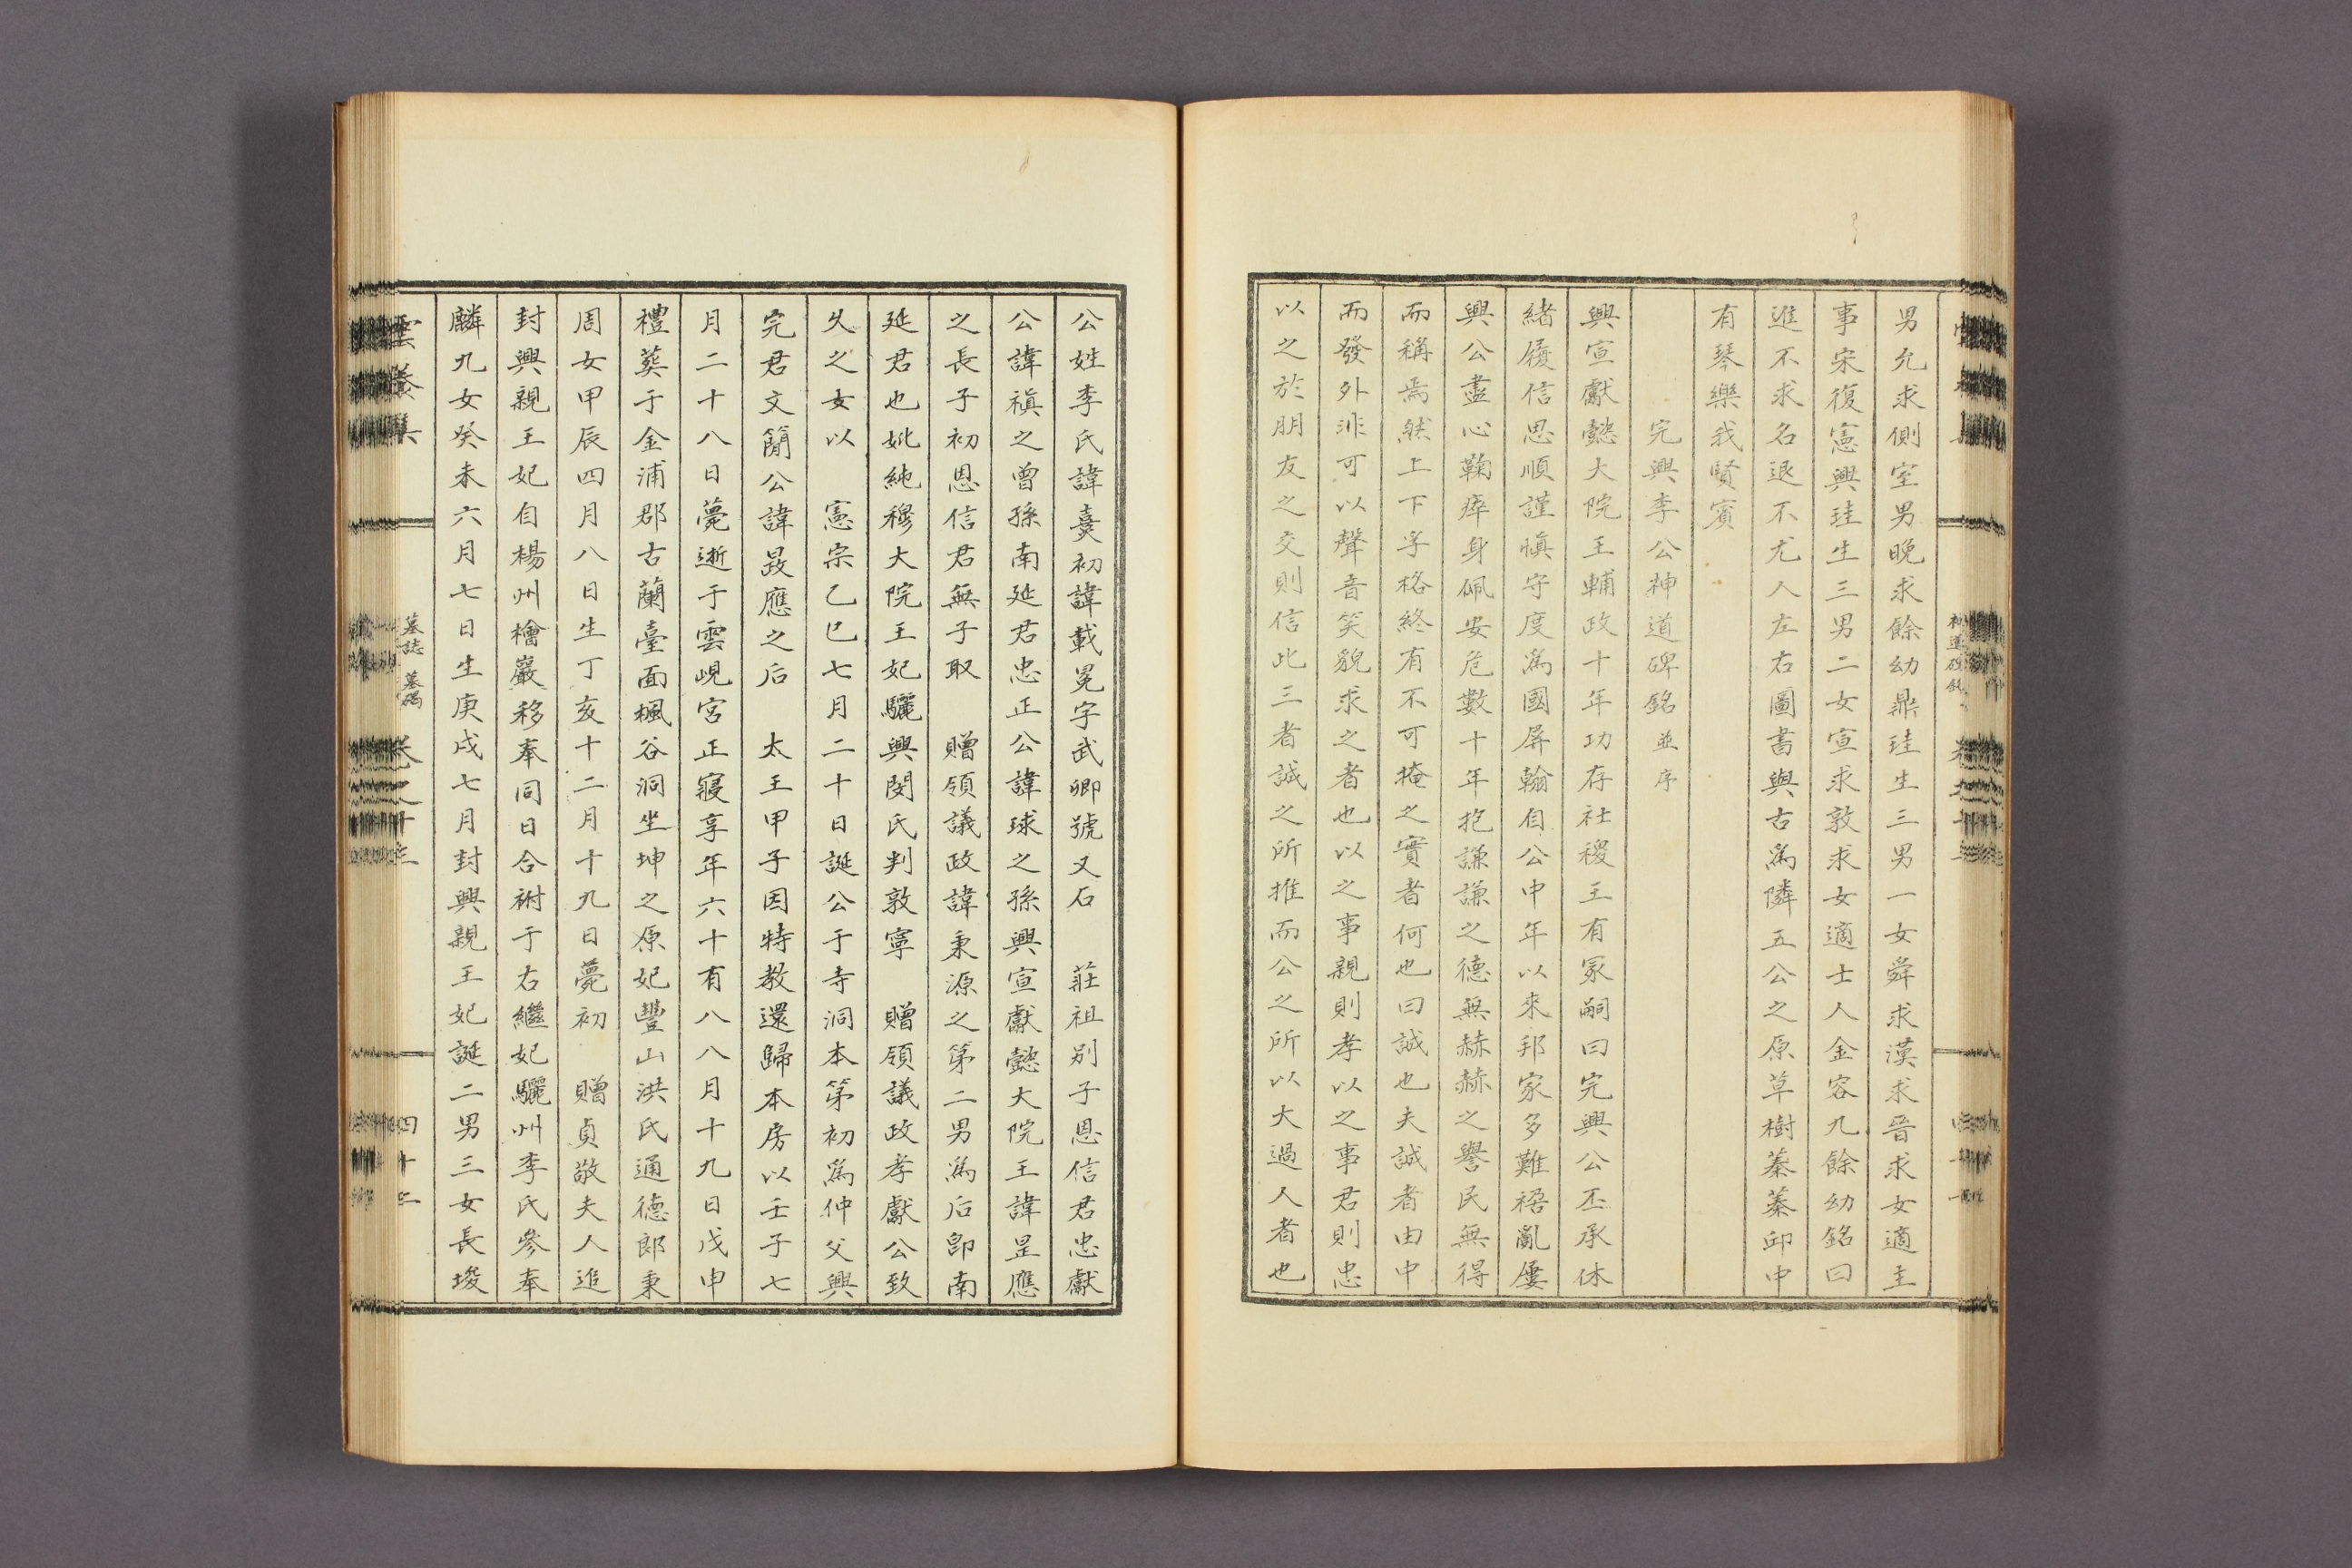 男允求側室男晩求餘幼鼎珪生三男一女舜求漢求晉求女適主
事宋復憲興珪生三男二女宣求敦求女適士人金容九餘幼銘曰
進不求名退不尤人左右圖書與古爲隣五公之原草樹蓁蓁邱中
有琴樂我賢賓
完興李公神道碑銘並序
興宣獻懿大院王輔政十年功存社稷王有冢嗣曰完興公丕承休
緒履信思順謹愼守度爲國屛翰自公中年以來邦家多難禍亂屢
興公盡心鞠瘁身佩安危數十年抱謙謙之德無赫赫之譽民無得
而稱焉然上下孚格終有不可掩之實者何也曰誠也夫誠者由中
而發外非可以聲音笑貌求之者也以之事親則孝以之事君則忠
以之於朋友之交則信此三者誠之所推而公之所以大過人者也
公姓李氏諱熹初諱載冕字武卿號又石 莊祖別子恩信君忠獻
公諱禛之曾孫南延君忠正公諱球之孫興宣獻懿大院王諱昰應
之長子初恩信君無子取 贈領議政諱秉源之第二男爲后卽南
延君也妣純穆大院王妃驪興閔氏判敦寧 贈領議政孝獻公致
久之女以 憲宗乙巳七月二十日誕公于寺洞本第初爲仲父興
完君文簡公諱晸應之后 太王甲子因特教還歸本房以壬子七
月二十八日薨逝于雲峴宮正寢享年六十有八八月十九日戊申
禮葬于金浦郡古蘭臺面楓谷洞坐坤之原妃豐山洪氏通德郎秉
周女甲辰四月八日生丁亥十二月十九日薨初 贈貞敬夫人追
封興親王妃自楊州檜巖移奉同日合祔于右繼妃驪州李氏參奉
麟九女癸未六月七日生庚戌七月封興親王妃誕二男三女長埈
雲養集
墓誌 墓碣
卷之十三
四十二